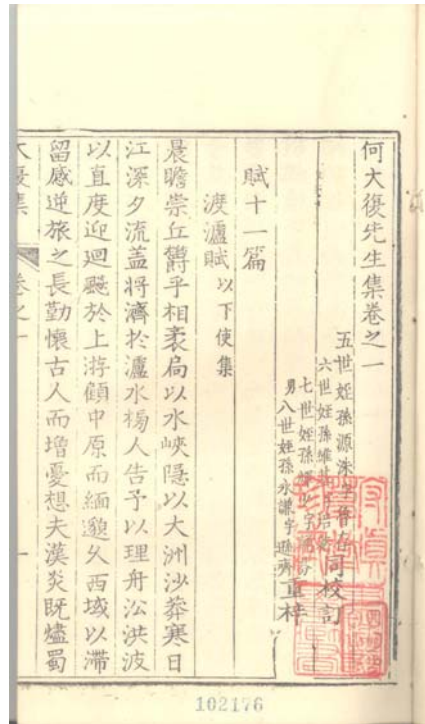 何大復先生集卷之一
五世姪孫源洙字
六世姪孫維
同校訂
七世姪孫
男八世姪孫永謙字遜齊
重梓
賦十一篇
渡瀘賦以下使集
晨瞻崇丘欝乎相裹局以水峽隱以大洲沙莽寒日
江深夕流盖將濟於瀘水榜人告予以理舟㳂洪波
以直度迎迴飈於上游顧中原而緬邈久西域以滯
留感逆旅之長勤懷古人而增憂想夫漢炎既燼蜀
大復集
卷之一
一
102176